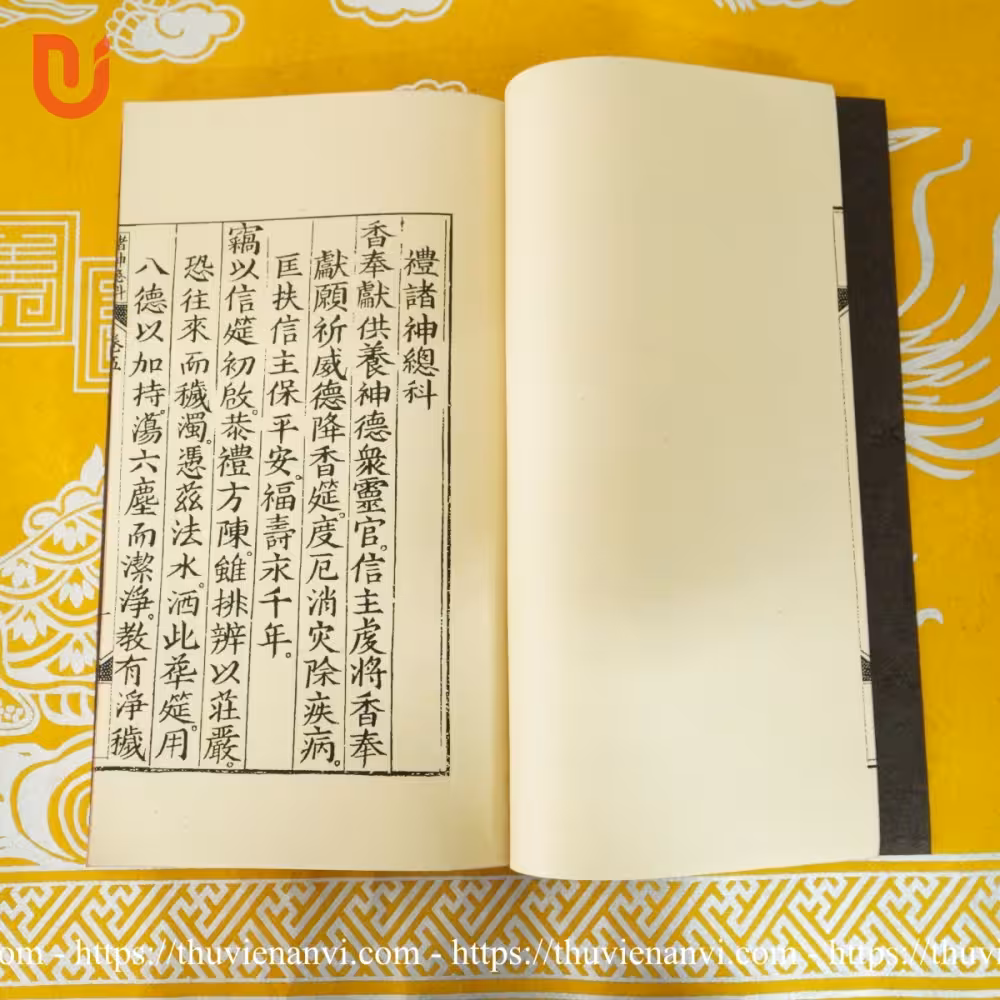 禮諸神總科
香奉獻供養神德衆靈官。信主虔將香奉
獻願祈威德降香筵。度厄消灾除疾病。
匡扶信主保平安。福壽永千年。
竊以信筵初啟。恭禮方陳。雖排辨以莊嚴。
恐往來而穢濁。憑茲法水。洒此華筵。用
八德以加持。蕩六塵而潔淨。教有淨穢
諸神總科
卷五
https://thuvienanvi.com - https://thuvienanvi.com - https://thuvienanvi